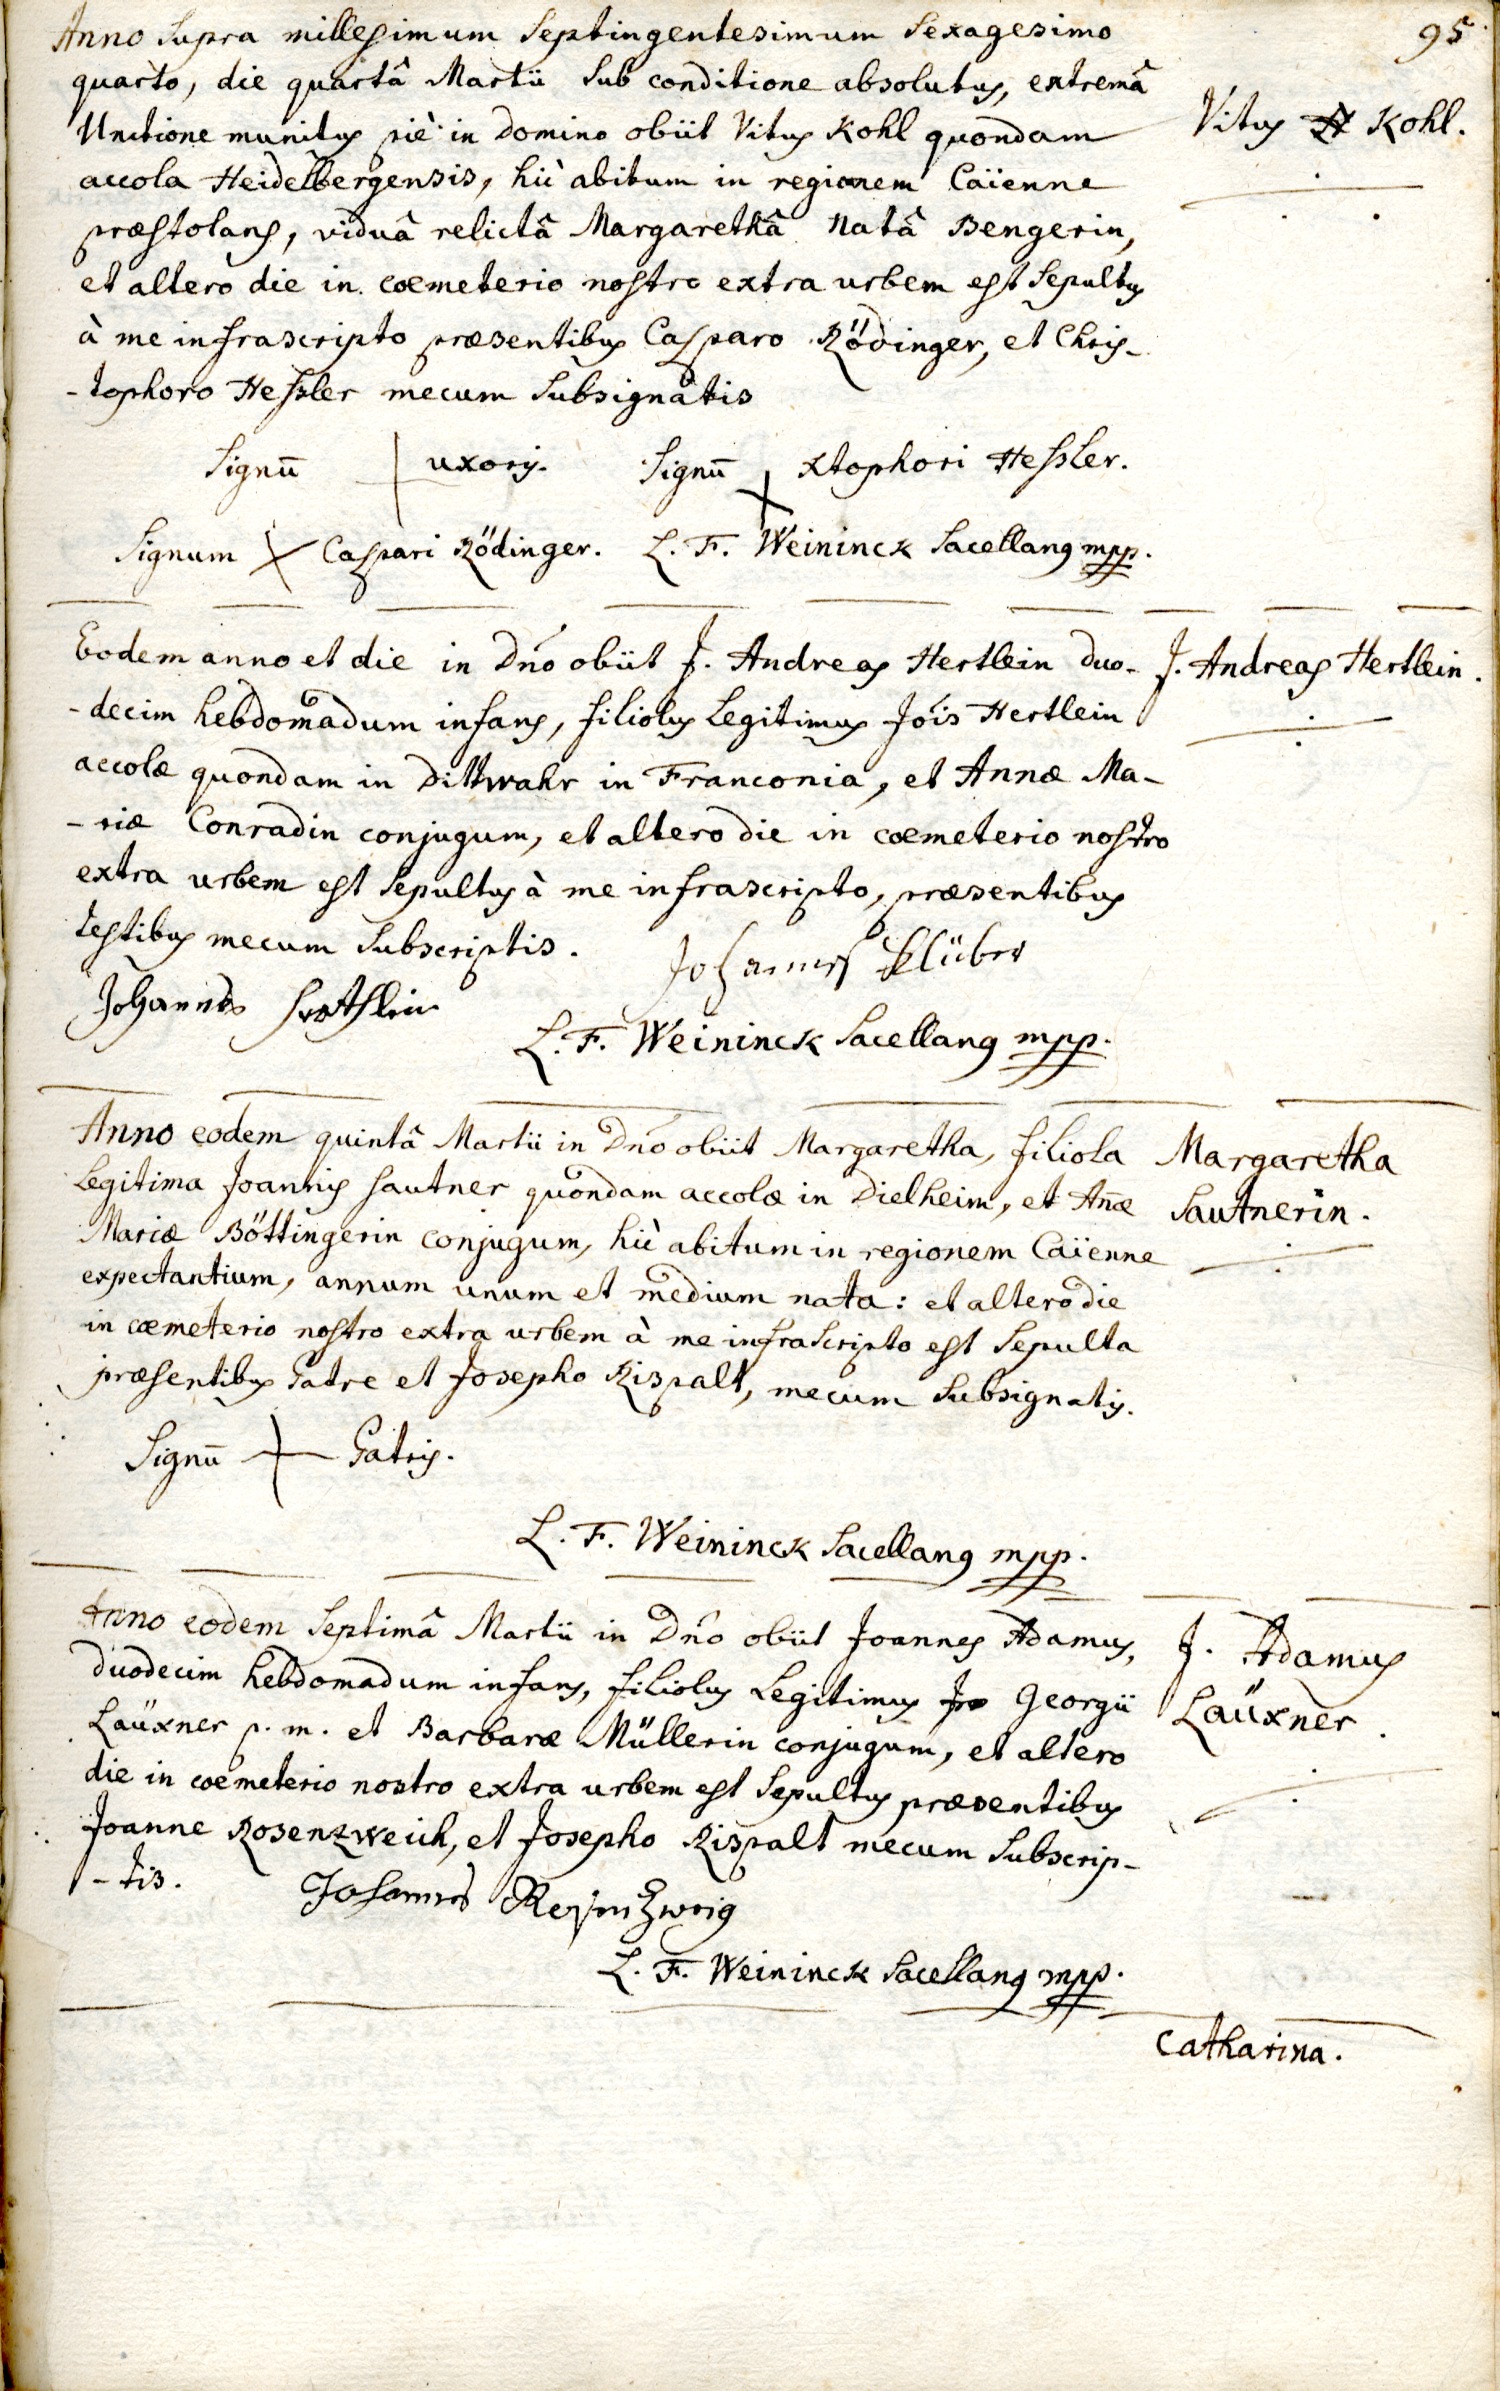 95
Anno supra millesimum septingentesimum sexagesimo
quarto, die quartâ Martii sub conditione absolutus, extremâ
Unctione munitus piè in Domino obiit Vitus Kohl quondam
Vitus Kohl.
accola Heidelbergensis, hìc abitum in regionem Caïenne
præstolans, viduâ relictâ Margarethâ Natâ Bengerin,
et altero die in cœmeterio nostro extra urbem est sepultus
à me infrascripto præsentibus Casparo Rödinger, et Chris-
-tophoro Hessler mecum subsignatis
Signū + uxoris. Signū + Xtophori Hessler.
Signum X Caspari Rödinger. L. F. Weininck Sacellanus mpp.
Eodem anno et die in Dño obiit J. Andreas Hertlein duo-
J. Andreas Hertlein.
-decim hebdomadum infans, filiolus legitimus Jois Hertlein
accolæ quondam in Dittwahr in Franconia, et Annæ Ma-
-riæ Conradin conjugum, et altero die in cœmeterio nostro
extra urbem est sepultus à me infrascripto, præsentibus
testibus mecum subscriptis. Johannes Klüber
Johannes
L. F. Weininck Sacellanus mpp.
Anno eodem quintâ Martii in Dño obiit Margaretha, filiola
Margaretha
legitima Joannis Sautner quondam accolæ in Dielheim, et Añæ
Sautnerin.
Mariæ Böttingerin conjugum, hìc abitum in regionem Caïenne
expectantium, annum unum et medium nata: et altero die
in cœmeterio nostro extra urbem à me infrascripto est sepulta
præsentibus Patre et Josepho Rispalt, mecum subsignatis.
Signū + Patris.
L. F. Weininck Sacellanus mpp.
Anno eodem septimâ Martii in Dño obiit Joannes Adamus,
J. Adamus
duodecim hebdomadum infans, filiolus legitimus Georgii
Laüxner.
Laüxner p. m. et Barbaræ Müllerin conjugum, et altero
die in cœmeterio nostro extra urbem est sepultus præsentibus
Joanne Rosenzweich, et Josepho Rispalt mecum subscrip-
-tis. Johannes
L. F. Weininck Sacellanus mpp.
Catharina.